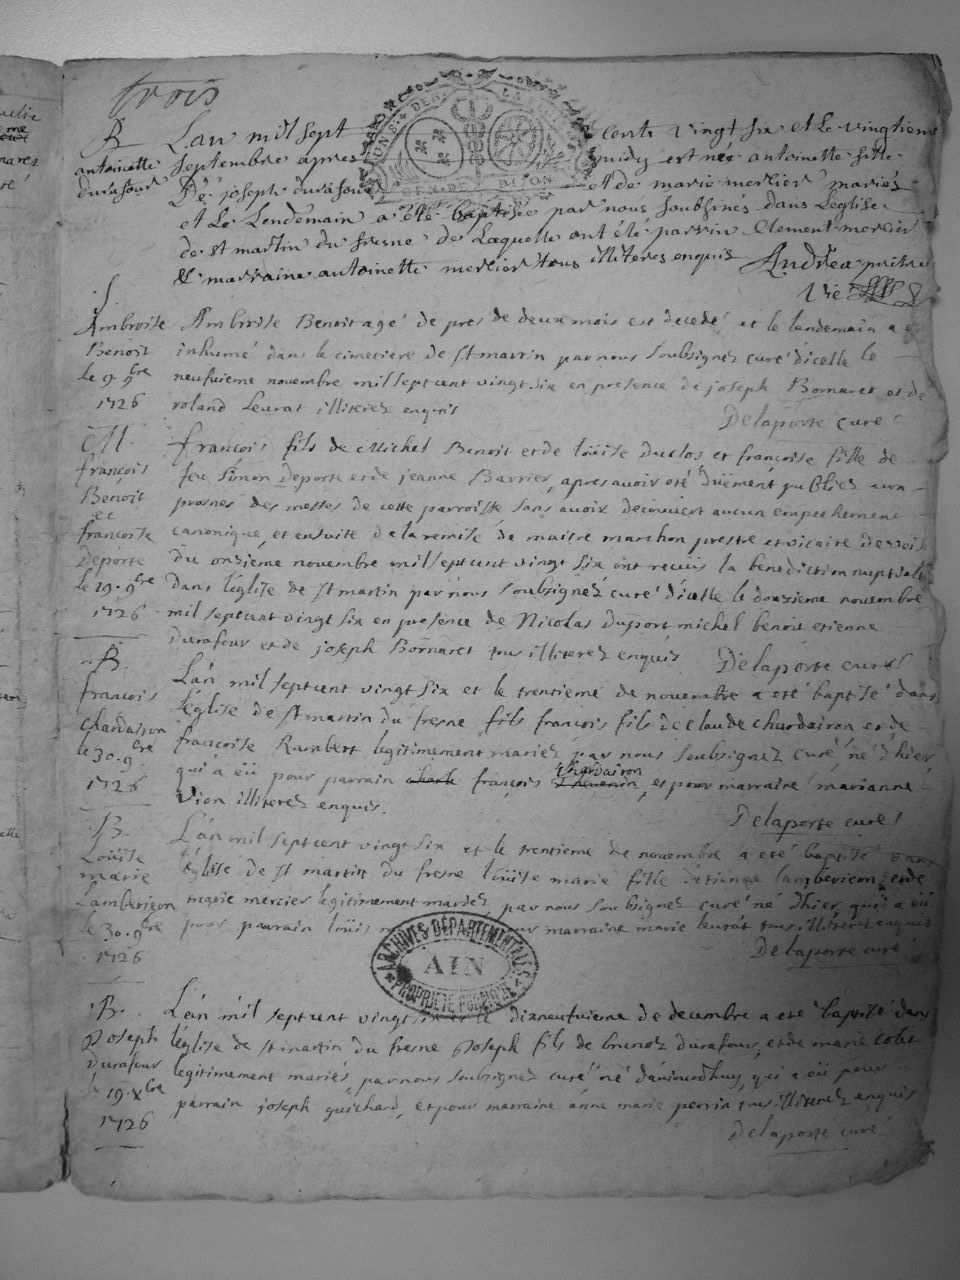 trois
B
antoinette
durafour
L'an mil sept cent vingt six et Le vingtieme
Septembre apres midy est née antoinette fille
De joseph durafour et de marie mercier mariés
et Le Lendemain a été baptisée par nous soubsinés dans L'eglise
de st martin du fresne de Laquelle ont été parrin Clement mercier
& marraine antoinette mercier tous illiteres enquis Andréa prêtre
Vic
S.
Ambroise
Benoit
le 9 9bre
1726
Ambroise Benoit agé de pres de deux mois est decedé et le landemain a
inhumé dans le cimetiere de st martin par nous soubsignez curé d'icelle le
neufuieme novembre mil sept cent vingt six en presence de joseph Bornaret et de
roland Leurat illiterez enquis
Delaporte curé
M.
françois
Benoit
et
françoise
Deporte
le 19. 9bre
1726
françois fils de Michel Benoit et de loüise Duclos et françoise fille de
feu simon Deporte et de jeanne Barrier, apres avoir été düement publiez aux
prosnes des messes de cette parroisse sans avoir decouvert aucun empechement
canonique, et ensuite de la remise de maitre marchon prestre et vicaire de
du onzième novembre mil sept cent vingt six ont receus la benediction nuptiale
dans l'église de st martin par nous soubsignéz curé d'icelle le douzieme novembre
mil sept cent vingt six en presence de Nicolas duport michel benoit etienne
durafour et de joseph Bornaret tous illiterez enquis Delaporte curé
B.
francois
chardairon
le 30. 9bre
1726
L'an mil sept cent vingt six et le trentieme de novembre a eté baptisé dans
l'église de st martin du fresne fils françois fils de claude chardairon et de
françoise Rambert legitimement mariez par nous soubsignez curé, né d'hier,
qui a eü pour parrain françois chardairon, et pour marraine marianne
Vion illiterez enquis.
Delaporte curé
B.
Loüise
marie
Lamberieon
le 30. 9bre
1726
L'an mil sept cent vingt six et le trentieme de novembre a eté baptisé dans
l'église de st martin du fresne loüise marie fille detienne lamberieon et de
marie mercier legitimement mariez, par nous soubsignez curé né d'hier, qui a eü
pour parrain loüis marraine marie leurat tous illiterez enquis
Delaporte curé
ARCHIVES DÉPARTEMENTALES
AIN
PROPRIÉTÉ PUBLIQUE
B.
Joseph
durafour
le 19. xbre
1726
L'an mil sept cent vingt six et le dixneufuieme de decembre a eté baptisé dans
l'église de st martin du fresne Joseph fils de brunoz durafour, et de marie colet
legitimement mariés, par nous soubsignez curé né d'aujourdhuy, qui a eü pour
parrain joseph guichard, et pour marraine anne marie perrin tous illiterez enquis
Delaporte curé